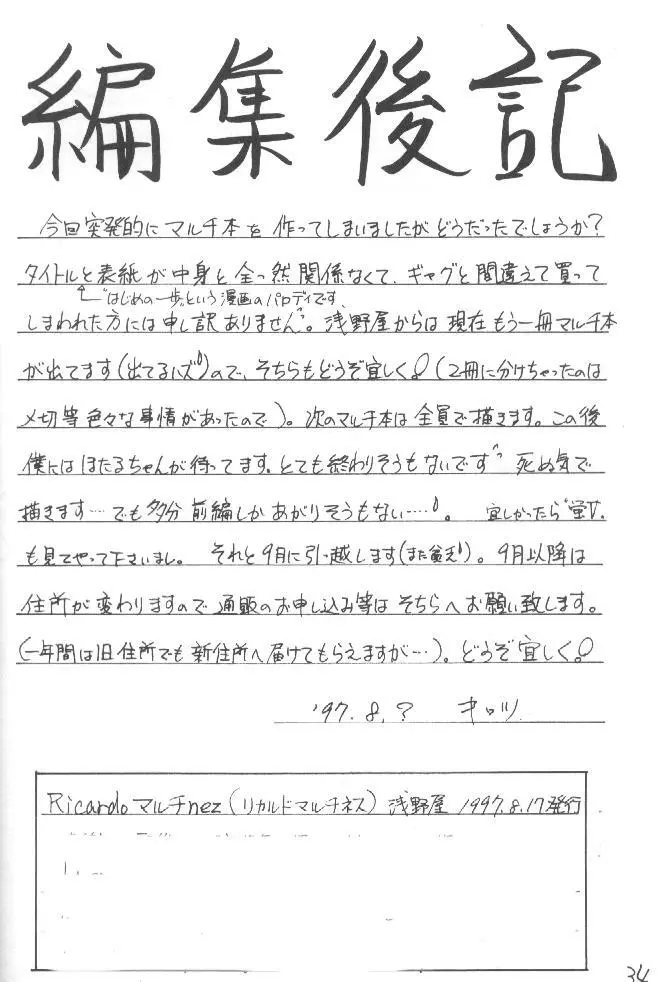 編集後記
今回突発的にマルチ本を作ってしまいましたがどうだったでしょうか?
タイトルと表紙が中身と全っ然関係なくて、ギャグと間違えて買って
"はじめの一歩"という漫画のパロディです、
しまわれた方には申し訳ありません^^。浅野屋からは現在もう一冊マルチ本
が出てます(出てるハズ)ので、そちらもどうぞ宜しく!(2冊に分けちゃったのは
〆切等色々な事情があったので)。次のマルチ本は全員で描きます。この後
僕にはほたるちゃんが待ってます。とても終わりそうもないです^^ 死ぬ気で
描きます…でも多分前編しかあがりそうもない…。 宜しかったら"蛍Ⅴ"
も見てやって下さいまし。 それと9月に引っ越します(また貧乏)。9月以降は
住所が変わりますので通販のお申し込み等はそちらへお願い致します。
(一年間は旧住所でも新住所へ届けてもらえますが…)。どうぞ宜しく!
'97.8.? キロツ
Ricardoマルチnez(リカルドマルチネス) 浅野屋 1997.8.17発行
34